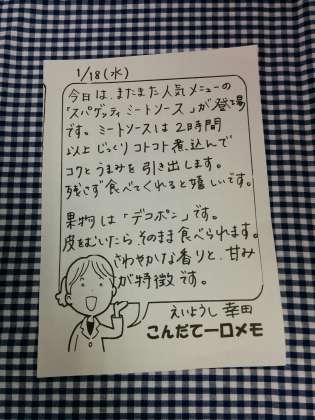 1/18(水)
今日は、またまた人気メニューの
「スパゲッティミートソース」が登場
です。ミートソースは2時間
以上じっくりコトコト煮込んで
コクとうまみを引き出します。
残さず食べてくれると嬉しいです。
果物は「デコポン」です。
皮をむいたら、そのまま食べられます。
さわやかな香りと、甘み
が特徴です。
えいようし 幸田
こんだて一口メモ